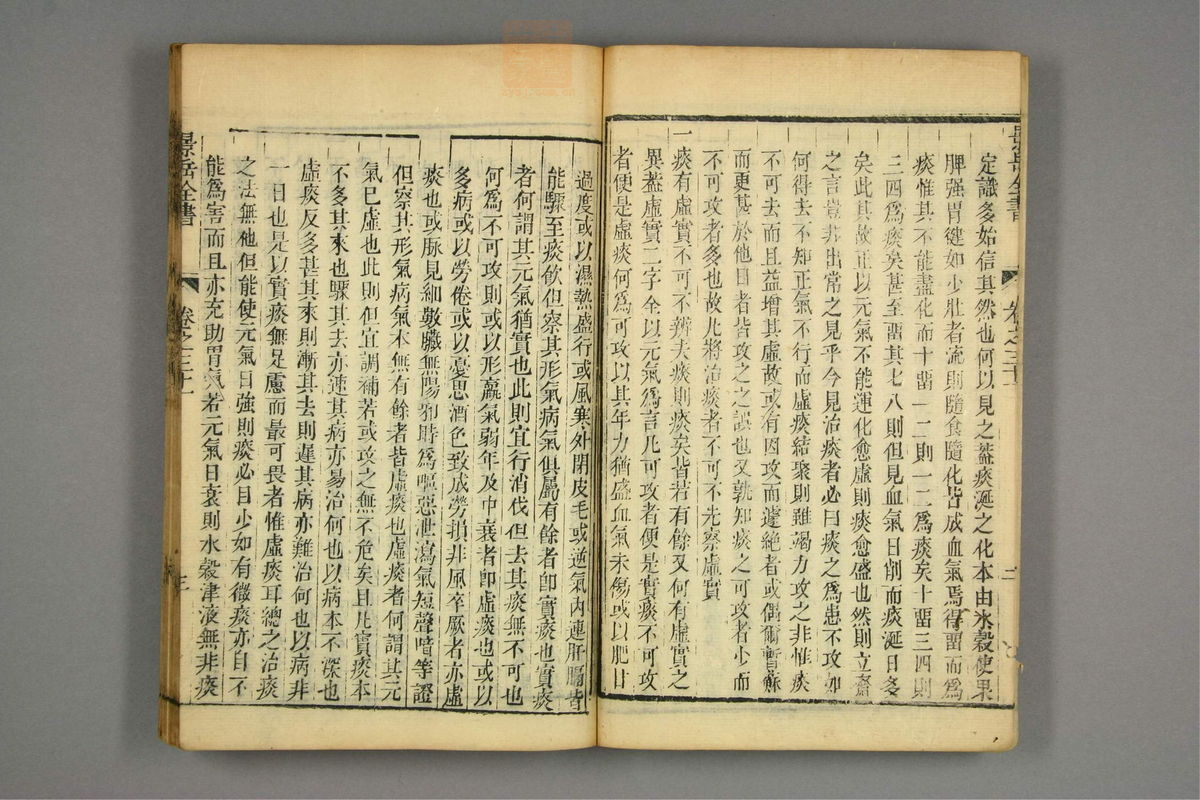 景岳全書
卷之三十一
二
定識多始信其然也何以見之蓋痰涎之化本由水穀使果
脾强胃健如少壯者流則隨食隨化皆成血氣焉得畱而爲
痰惟其不能盡化而十畱一二則一二爲痰矣十畱三四則
三四爲痰矣甚至畱其七八則但見血氣日削而痰涎日多
矣此其故正以元氣不能運化愈虛則痰愈盛也然則立齋
之言豈非出常之見乎今見治痰者必曰痰之爲患不攻如
何得去不知正氣不行而虛痰結聚則雖竭力攻之非惟痰
不可去而且益增其虛故或有因攻而遽絶者或偶爾暫蘇
而更甚於他日者皆攻之之誤也又孰知痰之可攻者少而
不可攻者多也故凡將治痰者不可不先察虛實
一痰有虛實不可不辨夫痰則痰矣皆若有餘又何有虛實之
異蓋虛實二字全以元氣爲言凡可攻者便是實痰不可攻
者便是虛痰何爲可攻以其年力猶盛血氣未傷或以肥甘
過度或以濕熱盛行或風寒外閉皮毛或逆氣內連肝膈皆
能驟至痰飮但察其形氣病氣俱屬有餘者卽實痰也實痰
者何謂其元氣猶實也此則宜行消伐但去其痰無不可也
何爲不可攻則或以形羸氣弱年及中衰者卽虛痰也或以
多病或以勞倦或以憂思酒色致成勞損非風卒厥者亦虛
痰也或脉見細數臟無陽邪時爲嘔惡泄瀉氣短聲喑等證
但察其形氣病氣本無有餘者皆虛痰也虛痰者何謂其元
氣已虛也此則但宜調補若或攻之無不危矣且凡實痰本
不多其來也驟其去亦速其病亦易治何也以病本不深也
虛痰反多甚其來則漸其去則遲其病亦難治何也以病非
一日也是以實痰無足慮而最可畏者惟虛痰耳總之治痰
之法無他但能使元氣日強則痰必日少如有微痰亦自不
能爲害而且亦充助胃氣若元氣日衰則水穀津液無非痰
景岳全書
卷之三十一
三